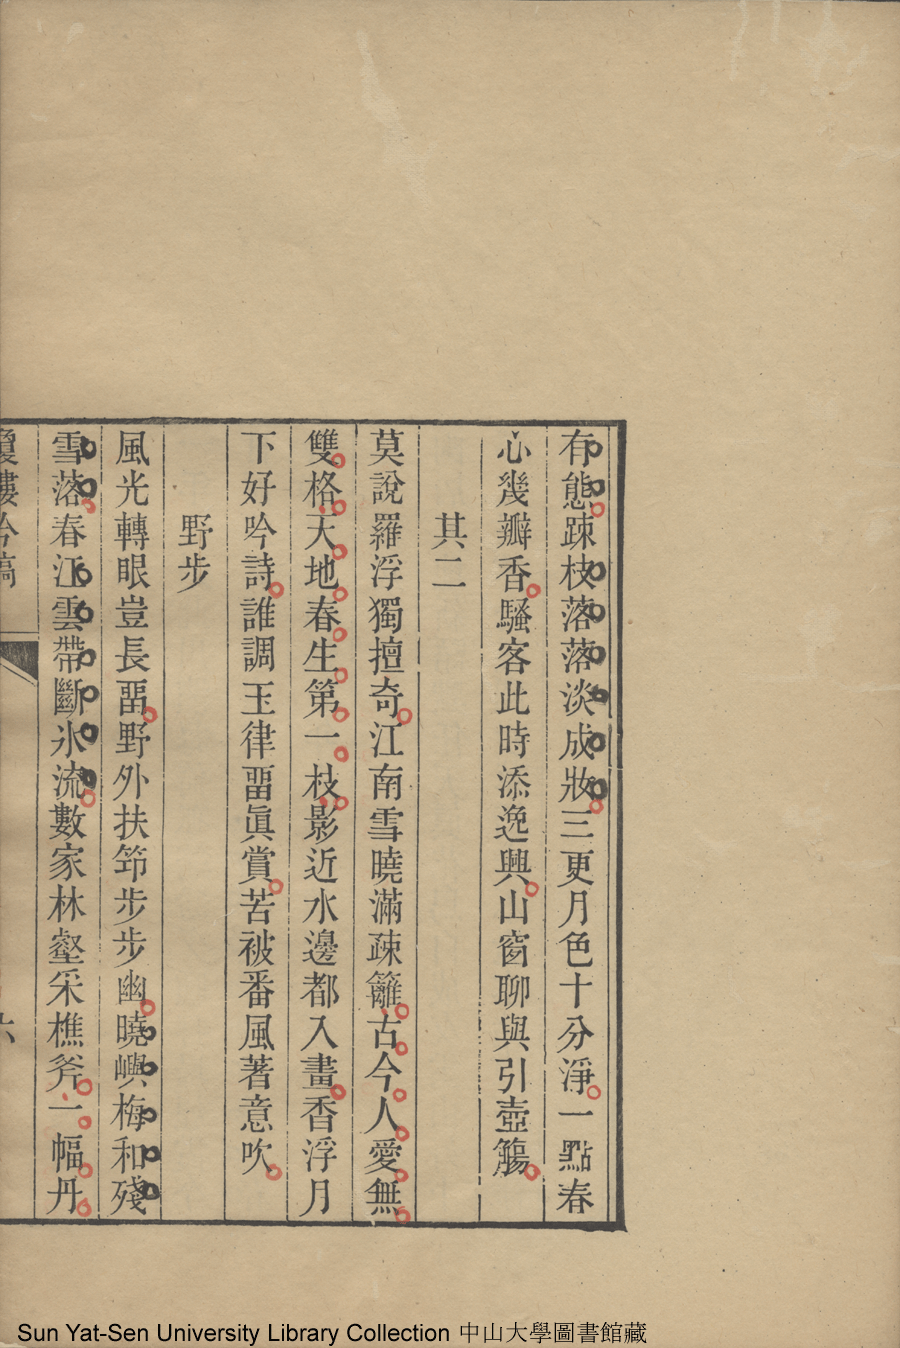 有態疎枝落落淡成妝三更月色十分淨一點春
心幾瓣香騷客此時添逸興山窗聊與引壺觴
其二
莫說羅浮獨擅奇江南雪曉滿疎籬古今人愛無
雙格天地春生第一枝影近水邊都入畫香浮月
下好吟詩誰調玉律畱眞賞苦被番風著意吹
野步
風光轉眼豈長畱野外扶筇步步幽曉嶼梅和殘
雪落春江雲帶斷氷流數家林壑采樵斧一幅丹
吟稿
六
Sun Yat-Sen University Library Collection 中山大學圖書館藏